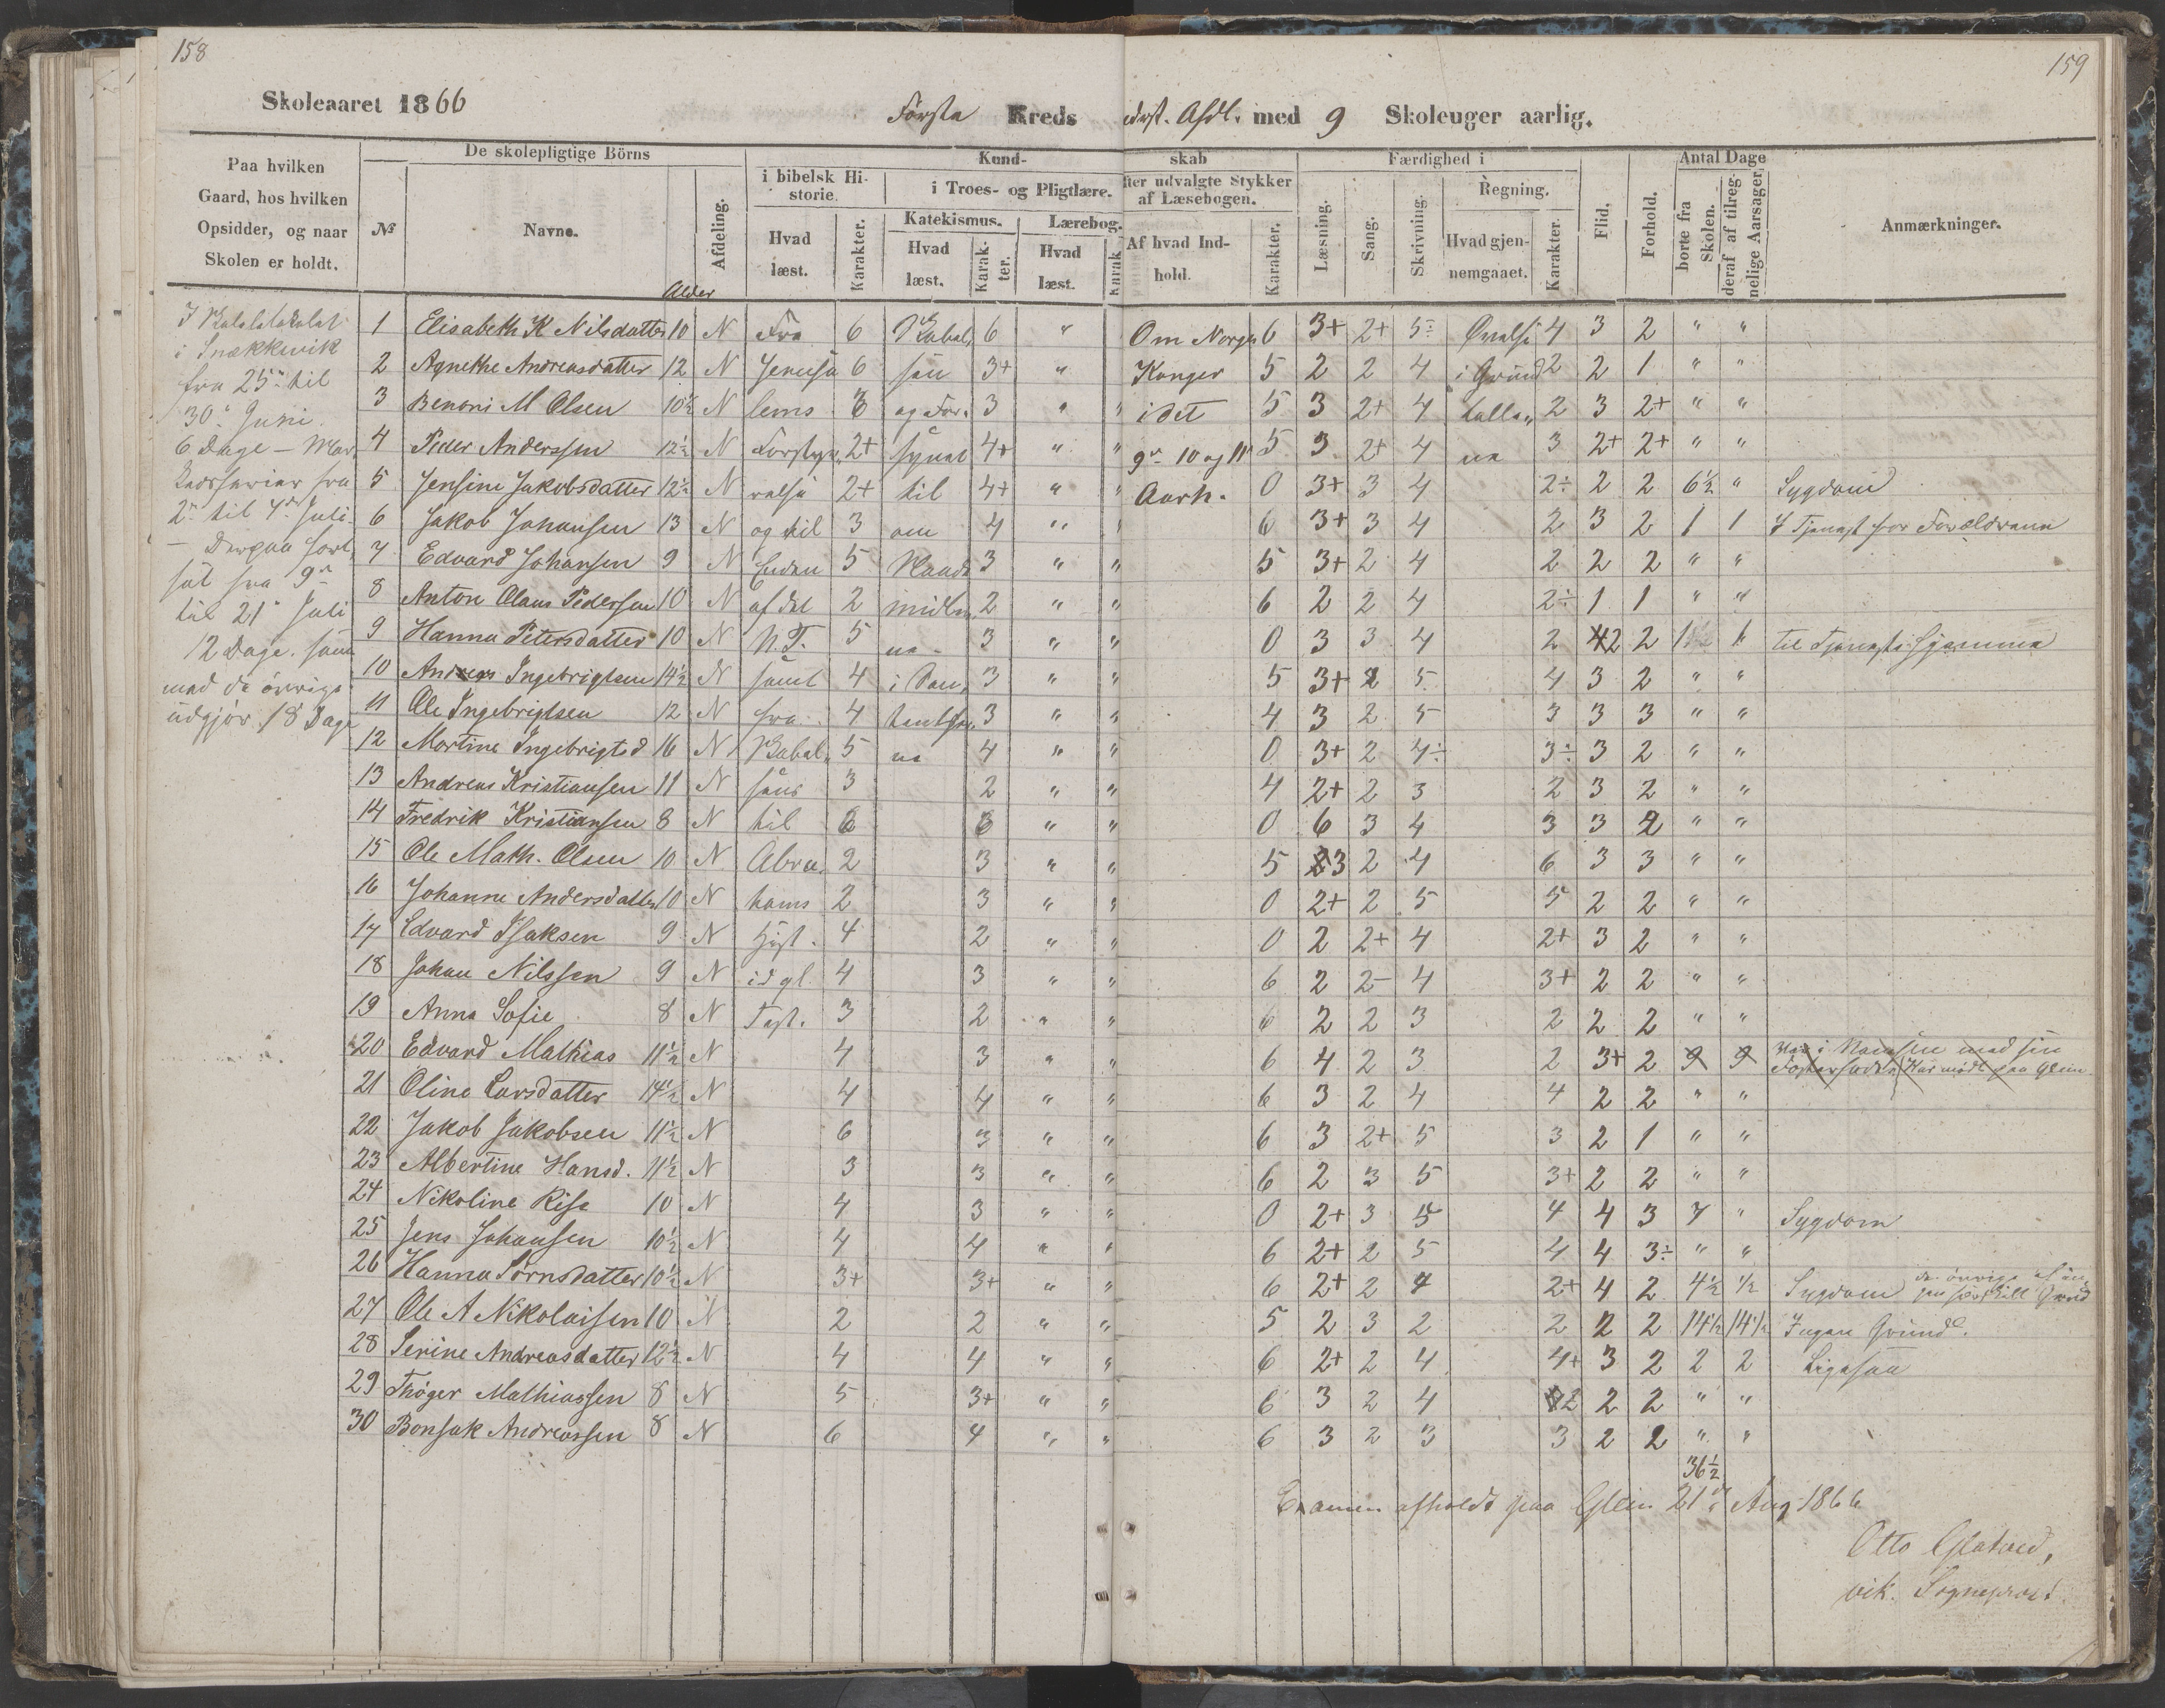 158
159
Skoleaaret 1866
Første Kreds
Afdl. med 9 Skoleuger aarlig.
Paa hvilken Gaard, hos hvilken Opsidder, og naar Skolen er holdt.
№
De skolepligtige Börns
Navne.
Alder
Afdeling.
Kundskab
i bibelsk Historie.
Hvad læst.
Karakter.
i Troes- og Pligtlære.
Katekismus.
Hvad læst.
Karakter.
Lærebog.
Hvad læst.
Karak
fter udvalgte Stykker af Læsebogen.
Af hvad Indhold.
Karakter.
Færdighed i
Læsning.
Sang.
Skrivning.
Regning.
Hvad gjennemgaaet.
Karakter.
Flid.
Forhold.
Antal Dage
borte fra Skolen.
deraf af tilregnelige Aarsager.
Anmærkninger.
i Snækkevik
fra 25de til
30te Juni.
6 Dage
2den til 4de Juli
fra 9de
til 21de Juli
12 Dage
med de övrige
udgjör 18 Dage
1 Elisabeth K Nilsdatter 10 N Fra 6 6 " Om Norges 6 3+ 2+ 5÷ 4 3 2 " "
2 Agnethe Andreasdatter 12 N Jerusa 6 3+ " Konger 5 2 2 4 i Grund 2 2 1 " "
3 Benoni M Olsen 10½ N lems 3 og For 3 " " i det 5 3 2+ 4 2 3 2+ " "
4 Peder Anderssen 12½ N Forstyr 2+ 4+ " " 9de 10 og 11te 5 3 2+ 4 3 2+ 2+ " "
5 Jensine Jakobsdatter 12½ N relse 2+ til 4+ " " Aarh. 0 3+ 3 4 2÷ 2 2 6½ " Sygdom
6 Jakob Johansen 13 N og til 3 om 4 " " 6 3+ 3 4 2 3 2 1 1 I Tjenest for Forældrene
7 Edvard Johansen 9 N Enden 5 3 " " 5 3+ 2 4 2 2 2 " "
8 Anton Claus Pedersen 10 N af det 2 2 " " 6 2 2 4 2÷ 1 1 " "
9 Hanna Petersdatter 10 N N.T. 5 3 " " 0 3 3 4 2 2 2 til Tjeneste hjemme
10 Anders Ingebrigtsen 14½ N samt 4 3 " " 5 3+ 2 5 4 3 2 " "
11 Ole Ingebrigtsen 12 N fra 4 3 " " 4 3 2 5 3 3 3 " "
12 Martine Ingebrigtsd 16 N 5 4 " " 0 3+ 2 4÷ 3÷ 3 2 " "
13 Andreas Kristiansen 11 N 3 2 " " 4 2+ 2 3 2 3 2 " "
14 Fredrik Kristiansen 8 N til 6 3 " " 0 6 3 4 3 3 2 " "
15 Ole Math. Olsen 10 N Abra 2 3 " " 5 3 2 4 6 3 3 " "
16 Johanne Andersdatter 10 N hams 2 3 " " 0 2+ 2 5 5 2 2 " "
17 Edvard Isaksen 9 N Hist. 4 2 " " 0 2 2+ 4 2+ 3 2 " "
18 Johan Nilssen 9 N i d gl. 4 3 " " 6 2 2- 4 3+ 2 2 " "
19 Anna Sofie 8 N Test. 3 2 " " 6 2 2 3 2 2 2 " "
20 Edvard Mathias 11½ N 4 3 " " 6 4 2 3 2 3+ 2 9 9
21 Oline Larsdatter 14½ N 4 4 " " 6 3 2 4 4 2 2 " "
22 Jakob Jakobsen 11½ N 6 3 " " 6 3 2+ 5 3 2 1 " "
23 Albertine Hansd. 11½ N 3 3 " " 6 2 3 5 3+ 2 2 " "
24 Nikoline Risa 10 N 4 3 " " 0 2+ 3 5 4 4 3 7 " Sygdom
25 Jens Johansen 10½ N 4 4 " " 6 2+ 2 5 4 4 3÷ " "
26 Hanna Sörnsdatter 10½ N 3+ 3+ " " 6 2+ 2 4 2+ 4 2 4½ ½ Sygdom
27 Ole A Nikolaisen 10 N 2 2 " " 5 2 3 2 2 2 2 14½ 14½ Ingen Grund.
28 Serine Andreasdatter 12½ N 4 4 " " 6 2+ 2 4 4+ 3 2 2 2 Ligesaa
29 Thøger Mathiassen 8 N 5 3+ " " 6 3 2 4 2 2 2 " "
30 Bonsak Andreassen 8 N 6 4 " " 6 3 2 3 3 2 2 " "
36½
Examen afholdt paa Glein 21de Aug 1866
Otto
vik. Sogneprest